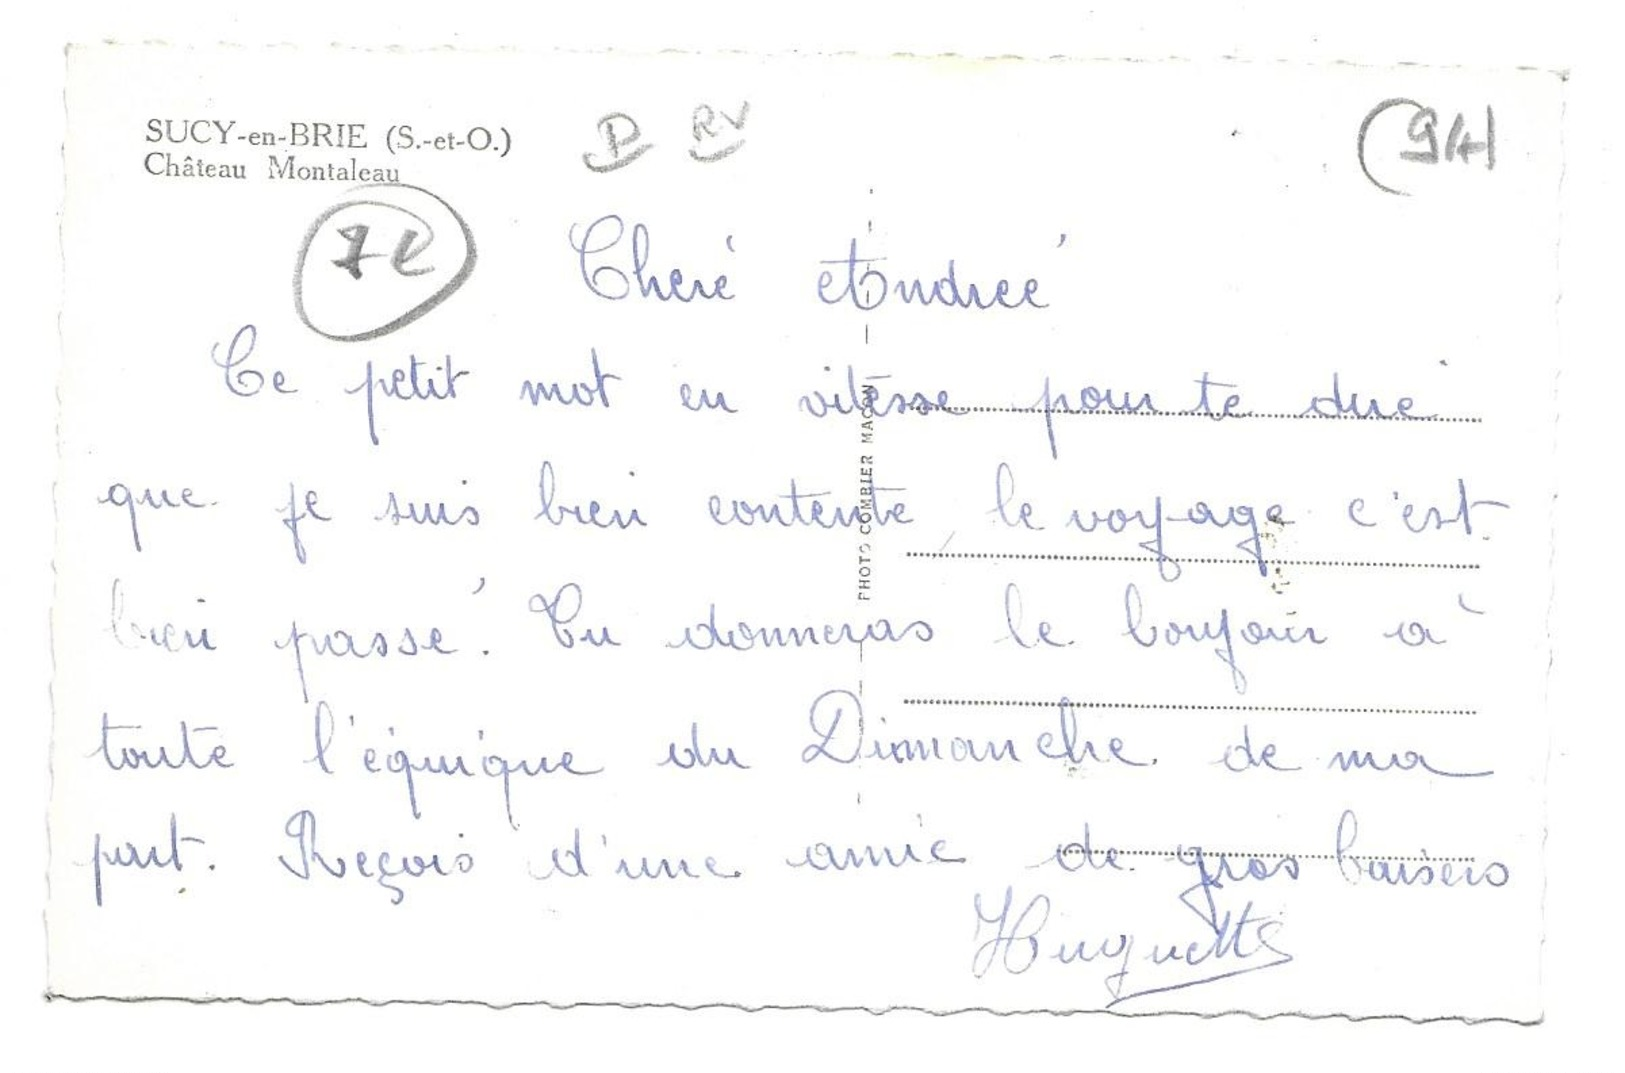 SUCY-en-BRIE (S.-et-O.)
Château Montaleau
P RV
(94)
Cheré Andreé
Ce petit mot en vitèsse pour te dire
que je suis bien contente, le voyage c'est
bien passé. Tu donneras le bonjour à
toute l'équique du Dimanche de ma
part. Reçois d'une amie de gros baisers
Huguette
PHOTO COMBIER MACON